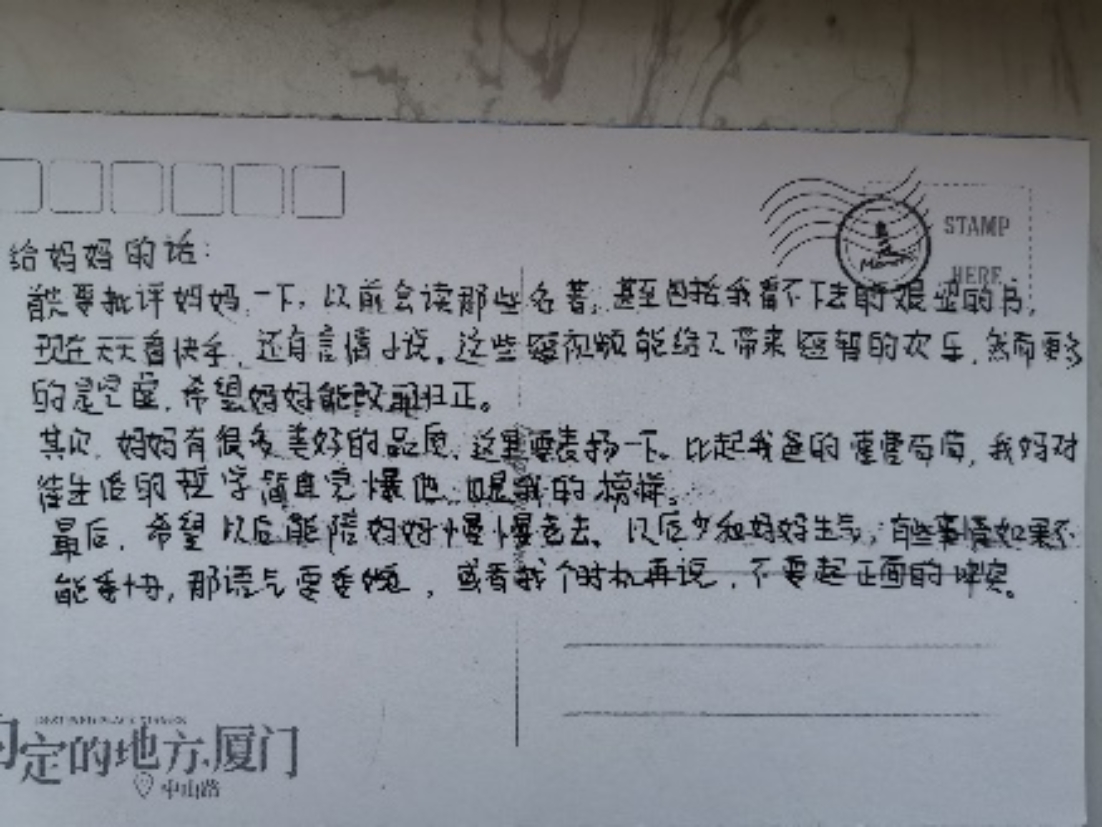 STAMP
HERE
给妈妈的话:
首先要批评妈妈一下,以前会读那些名著,甚至包括我看不下去的很尘的书,
现在天天看快手,还有言情小说,这些短视频能给人带来短暂的欢乐,然而更多
的是空虚,希望妈妈能改邪归正。
其次,妈妈有很多美好的品质,这里要表扬一下。比起我爸的,我妈对
待生活的哲学简直完爆他,是我的榜样。
最后,希望以后能陪妈妈慢慢老去、以后少和妈妈生气,有些事情如果不
能妥协,那语气要委婉,或者找个时机再说,不要起正面的冲突。
定的地方.厦门
中山路